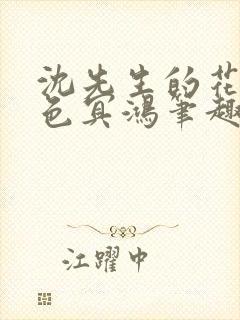 沈先生的花
色冥鸿笔趣
江躍中